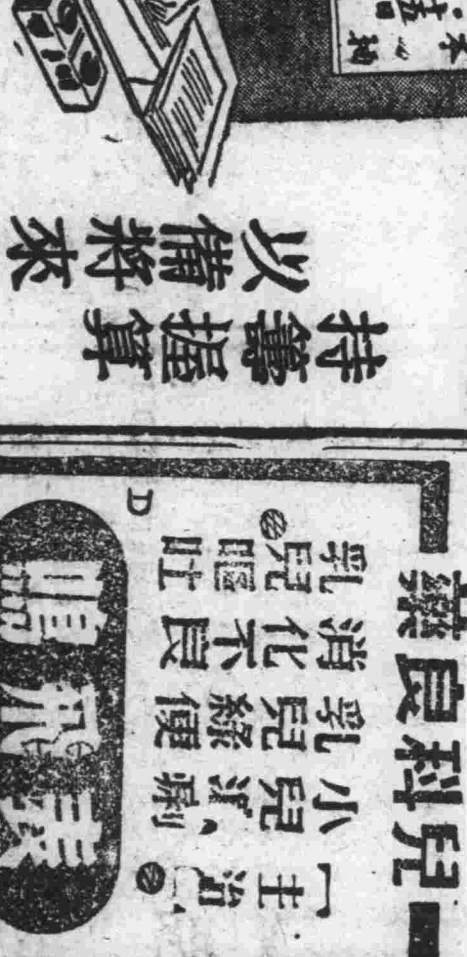 持籌握算
以備將來
兒科良藥
【主治】
小兒瀉痢
乳兒綠便
消化不良
乳兒嘔吐
D